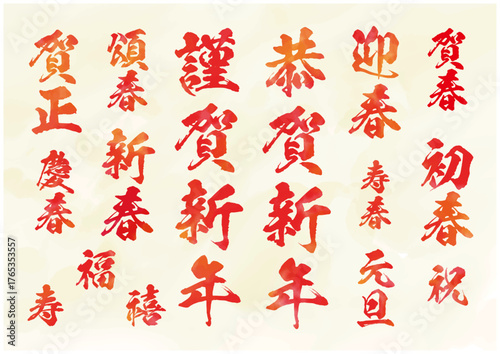 賀春
初春
祝
迎春
寿春
元旦
恭賀新年
謹賀新年
頌春
新春
福
禧
賀正
慶春
寿
Adobe Stock | #1765353557